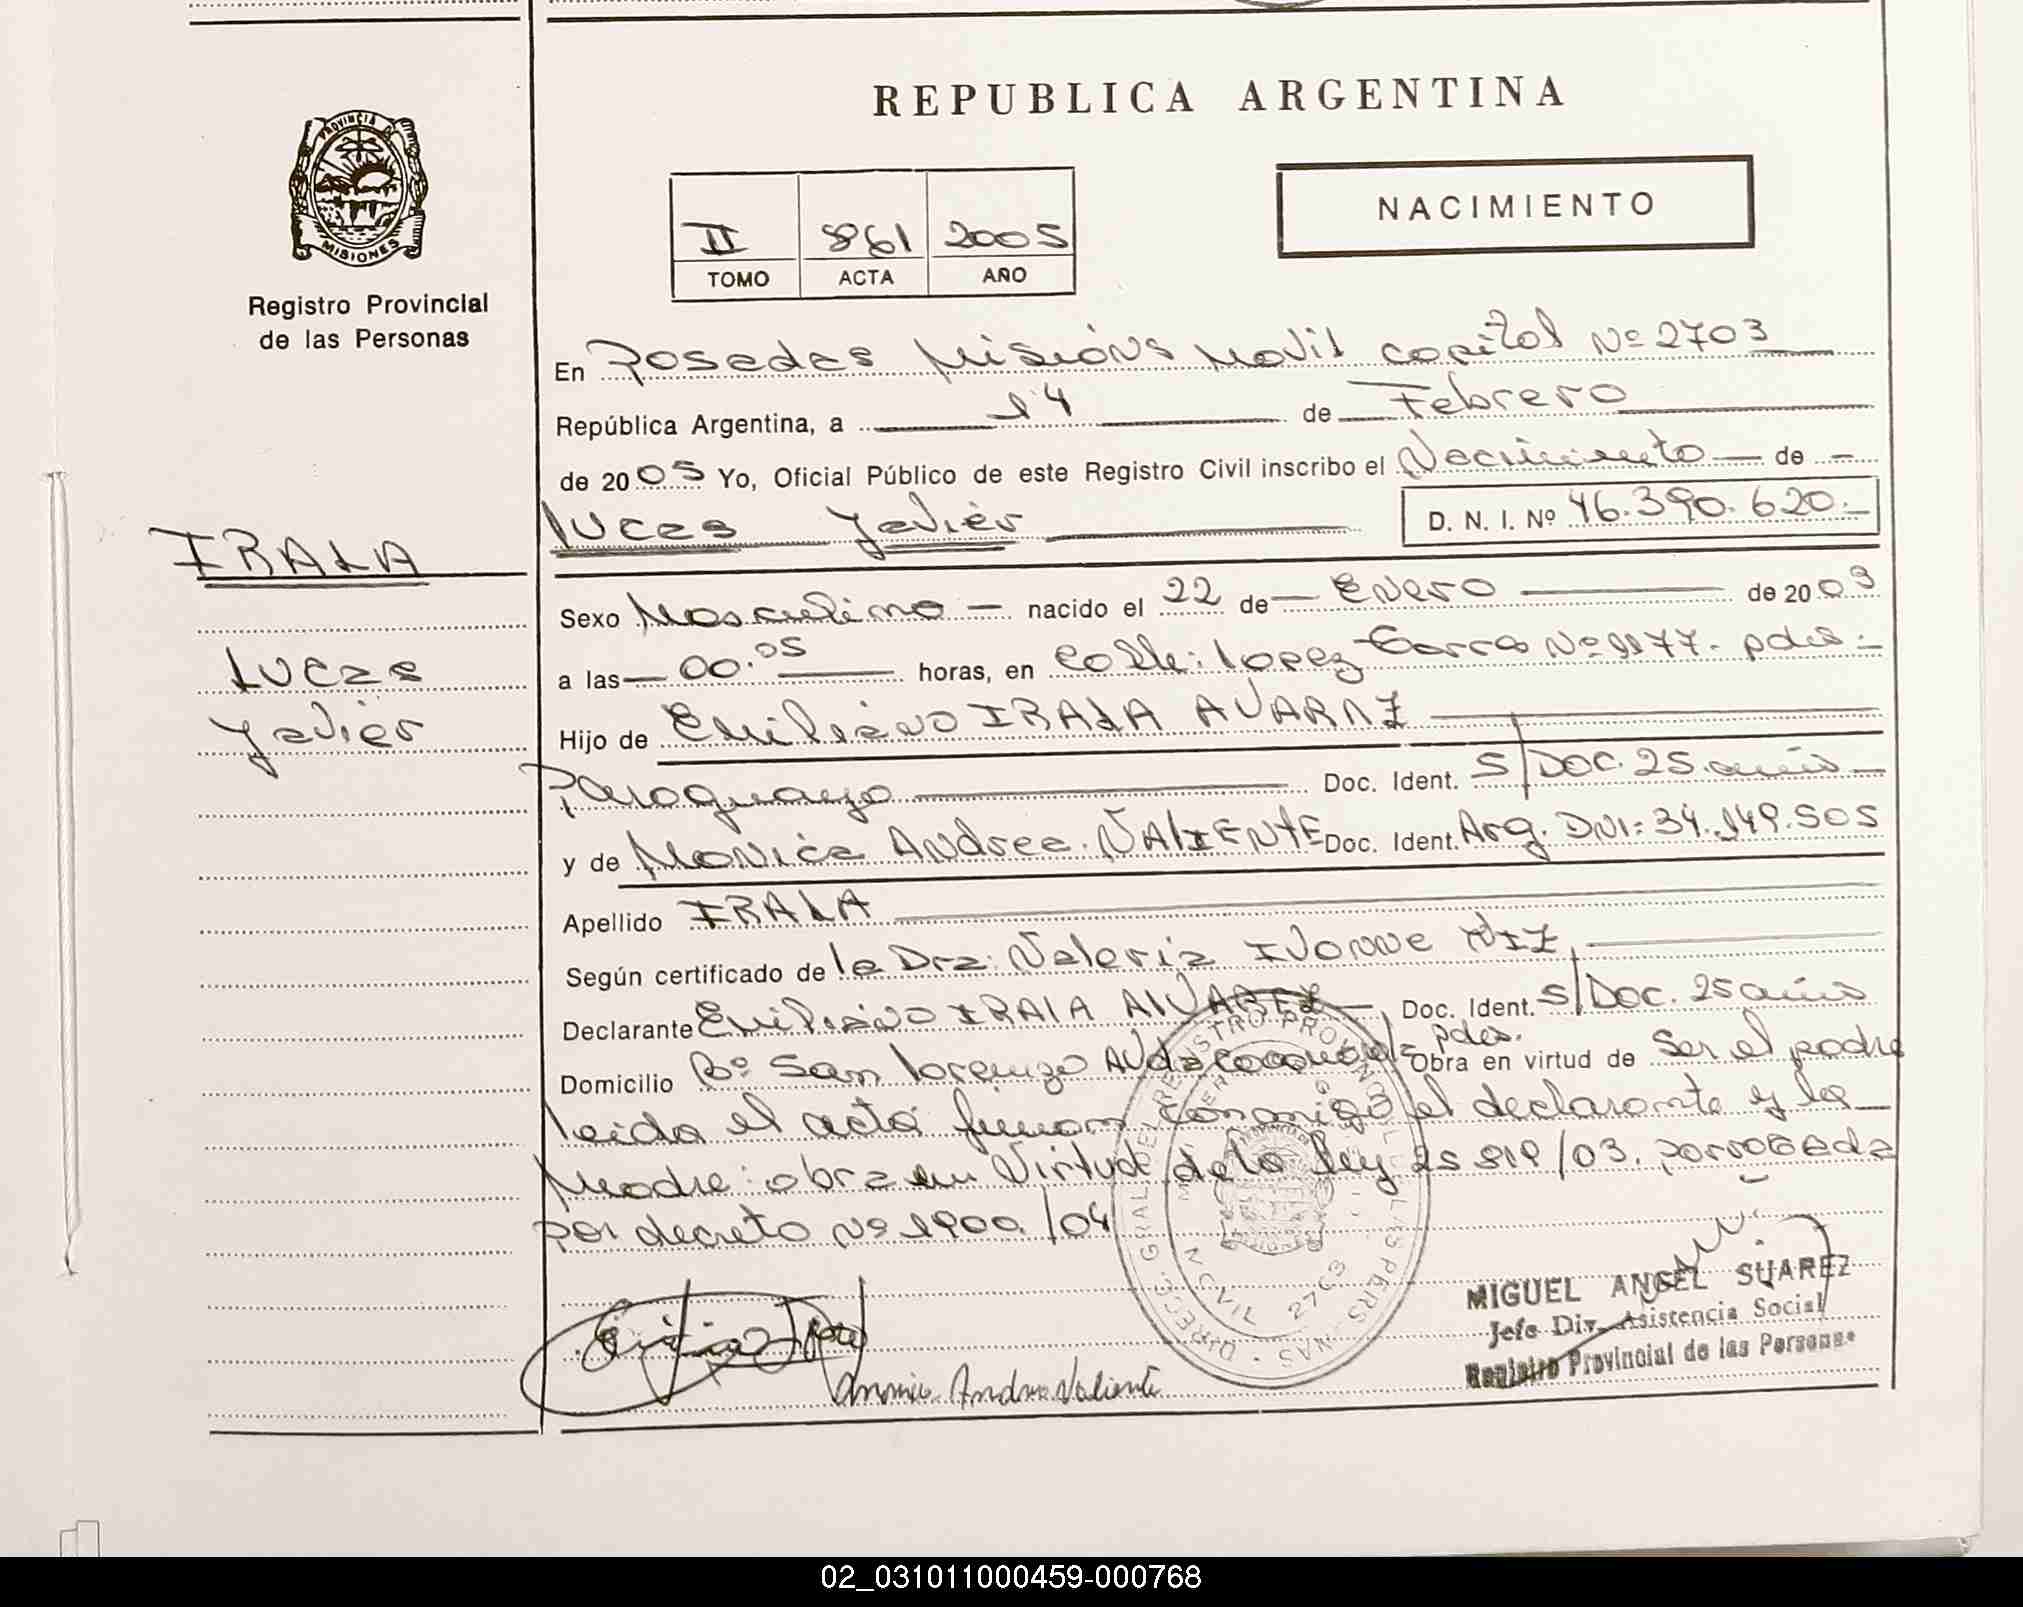 REPUBLICA ARGENTINA
PROVINCIA DE
MISIONES
Registro Provincial
de las Personas
II 861 2005
TOMO ACTA AÑO
NACIMIENTO
En Posadas Misións Movil Capital Nº 2703
República Argentina, a 14 de Febrero
de 2005 Yo, Oficial Público de este Registro Civil inscribo el Nacimiento de
Lucas Javier D. N. I. Nº 46.390.620.-
IRALA
Lucas
Javier
Sexo Masculino - nacido el 22 de Enero de 2003
a las 00.05 horas, en Calle: Lopez Nº 1177. pdas.
Hijo de Emiliano IRALA
Paraguayo Doc. Ident. S/Doc. 25 años
y de Monica Andrea VALIENTE Doc. Ident. Arg. DNI: 34.149.505
Apellido IRALA
Según certificado de la Dra. Valeria Ivonne
Declarante Emiliano IRALA ALVAREZ Doc. Ident. S/Doc. 25 años
Domicilio Bº San Lorenzo Avda pdas. Obra en virtud de Ser el padre
leida el acta firman conmigo el declarante y la
Madre: obra en Virtud de la ley 25 819/03.
por decreto Nº 1900/04
Monica Andrea Valiente
MIGUEL ANGEL SUAREZ
Jefe Div. Asistencia Social
Registro Provincial de las Personas
02_031011000459-000768